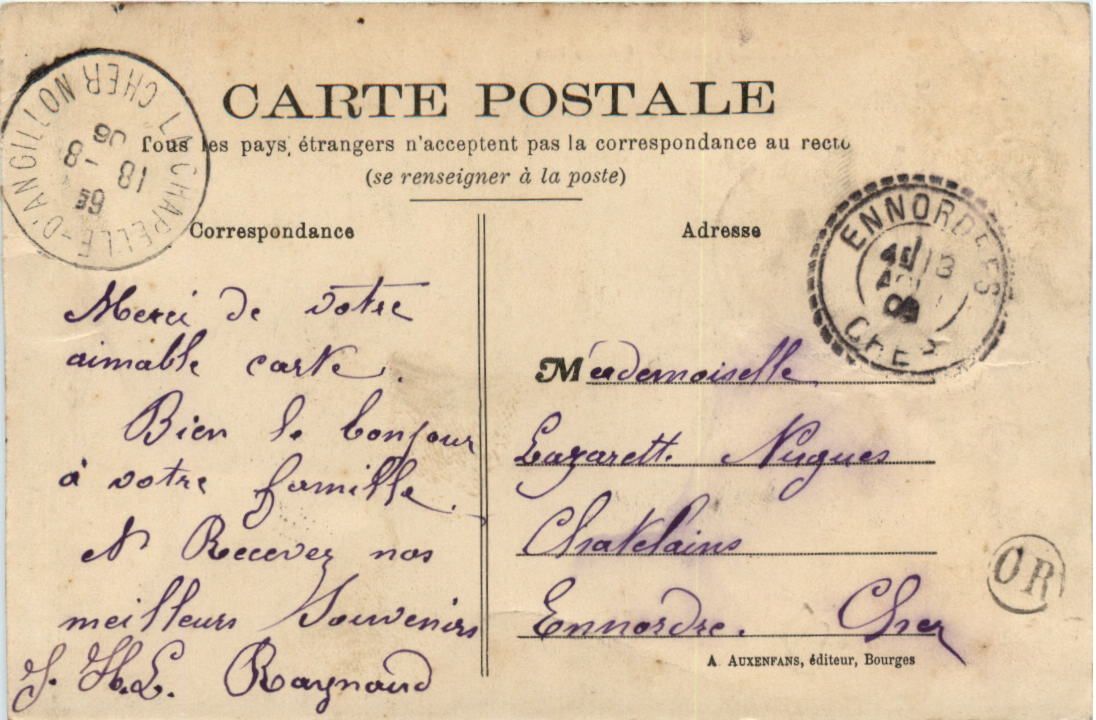 CARTE POSTALE
Tous les pays étrangers n'acceptent pas la correspondance au recto
(se renseigner à la poste)
LA CHAPELLE-D'ANGILLON CHER
6E
18 -8
06
Correspondance
Merci de votre
aimable carte.
Bien le bonjour
à votre famille.
et Recevez nos
meilleurs Souvenirs
J. H.L. Raynaud
Adresse
ENNORDRES
CHER
Mademoiselle
Lazarette Nugues
Chatelains
Ennordre. Cher
OR
A. AUXENFANS, éditeur, Bourges